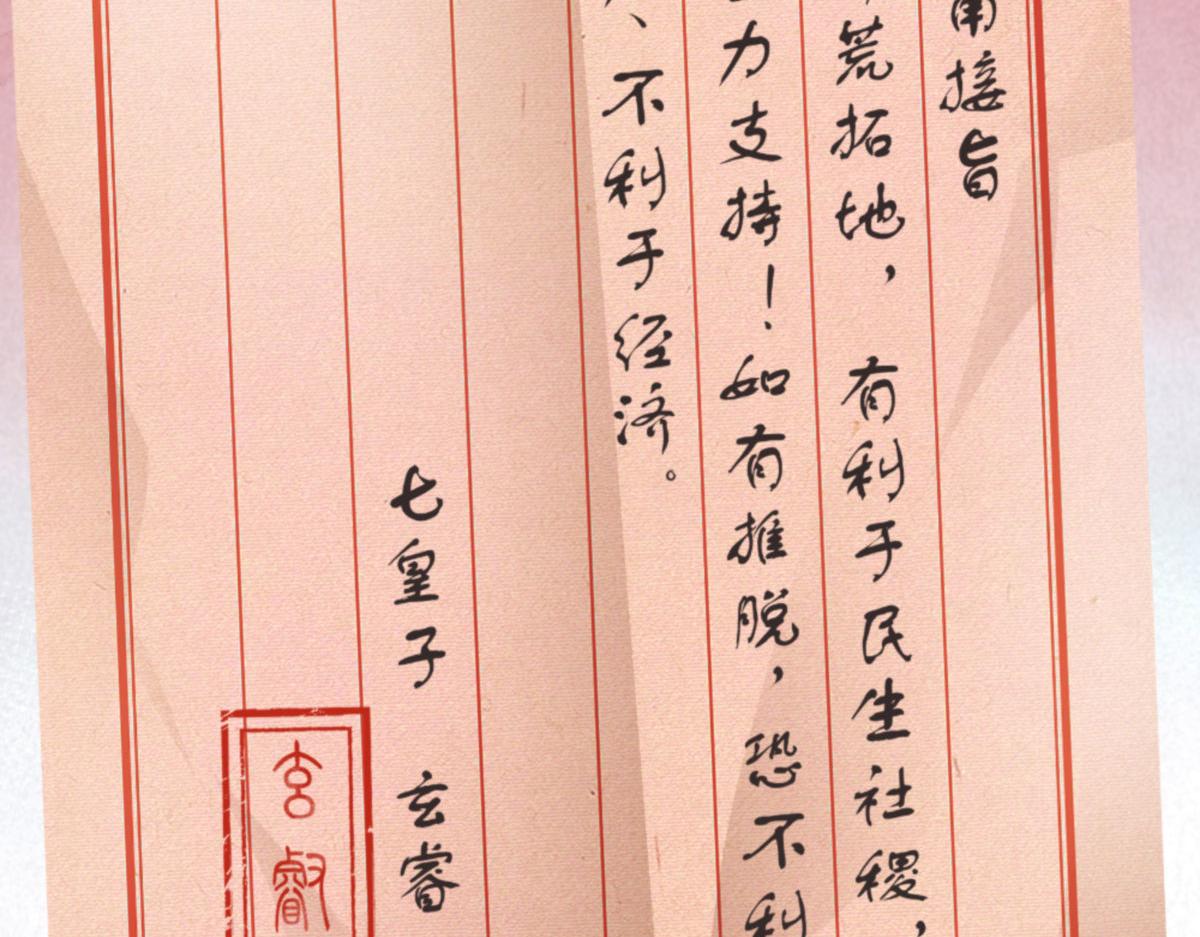 接旨
荒拓地，有利于民生社稷，
力支持！如有推脱，恐不利
、不利于经济。
七皇子 玄睿
玄叡